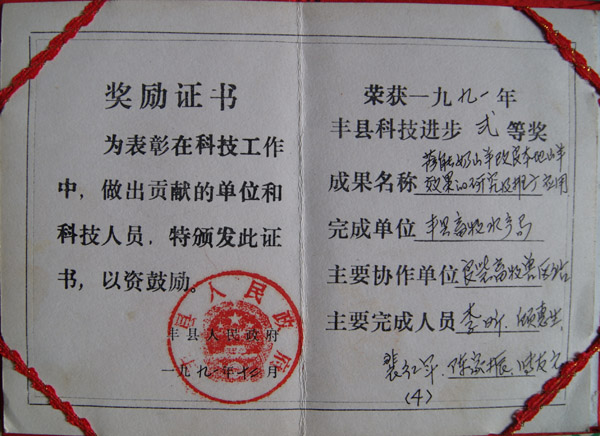 奖励证书
为表彰在科技工作
中，做出贡献的单位和
科技人员，特颁发此证
书，以资鼓励。
丰县人民政府
一九九一年十二月
丰县人民政府
荣获一九九一年
丰县科技进步 弍 等奖
奶山羊改良本地山羊
成果名称 效果的研究及推广应用
完成单位 丰县畜牧水产局
主要协作单位 畜牧兽医站
主要完成人员 李昕、顾惠生
(4)